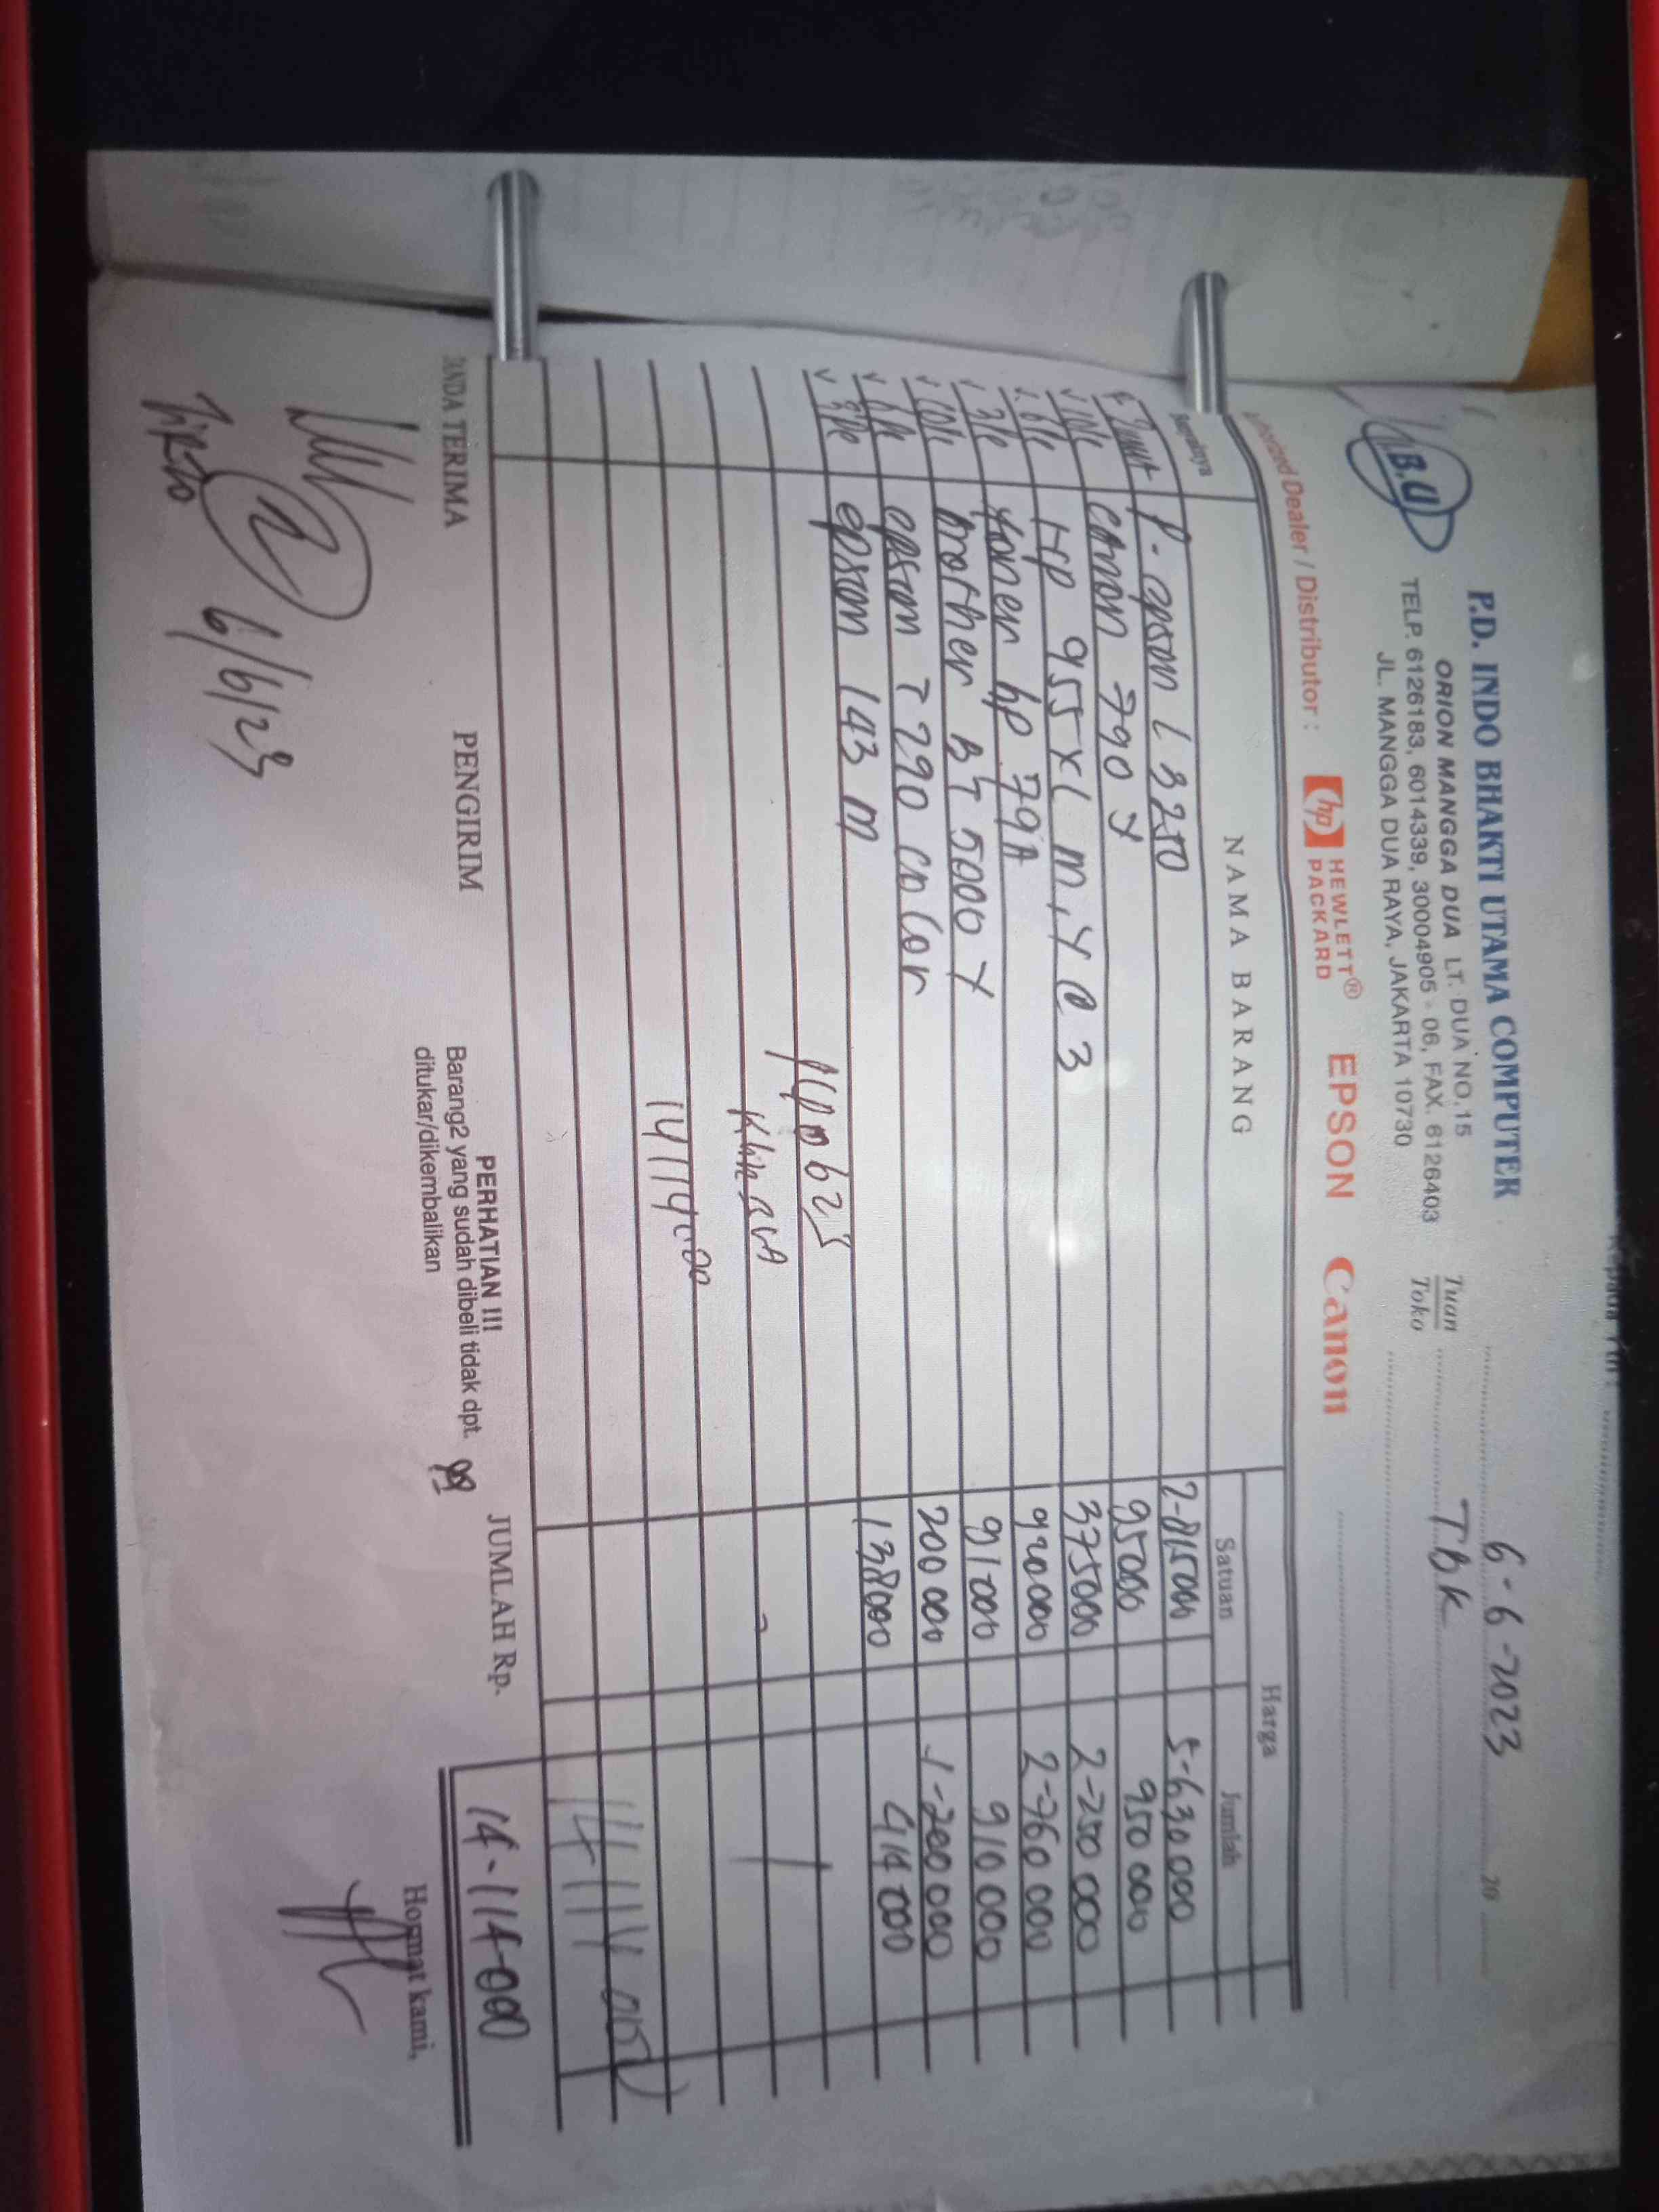 6-6-2023 20
P.D. INDO BHAKTI UTAMA COMPUTER
I.B.U
ORION MANGGA DUA LT. DUA NO.15
TELP. 6126183, 6014339, 30004905 - 06, FAX. 6126403
JL. MANGGA DUA RAYA, JAKARTA 10730
Tuan TBK
Toko
Authorized Dealer / Distributor : hp HEWLETT® PACKARD EPSON Canon
Banyaknya NAMA BARANG Harga
Satuan Jumlah
2 unit P. epson L 3250 2-815000 5-630 000
10 pc canon 790 Y 95000 950 000
6 pc HP 955 XL M, Y C 3 375000 2-250 000
3 pc toner hp 79A 920000 2-760 000
10 pc brother BT 5000 Y 91000 910 000
6 pc epson T 290 color 200 000 1-200 000
3 pc epson 143 M 138000 414 000
14114000
14 114 000
TANDA TERIMA PENGIRIM
PERHATIAN !!!
Barang2 yang sudah dibeli tidak dpt.
ditukar/dikembalikan
JUMLAH Rp. 14-114-000
Hormat kami,
6/6/23